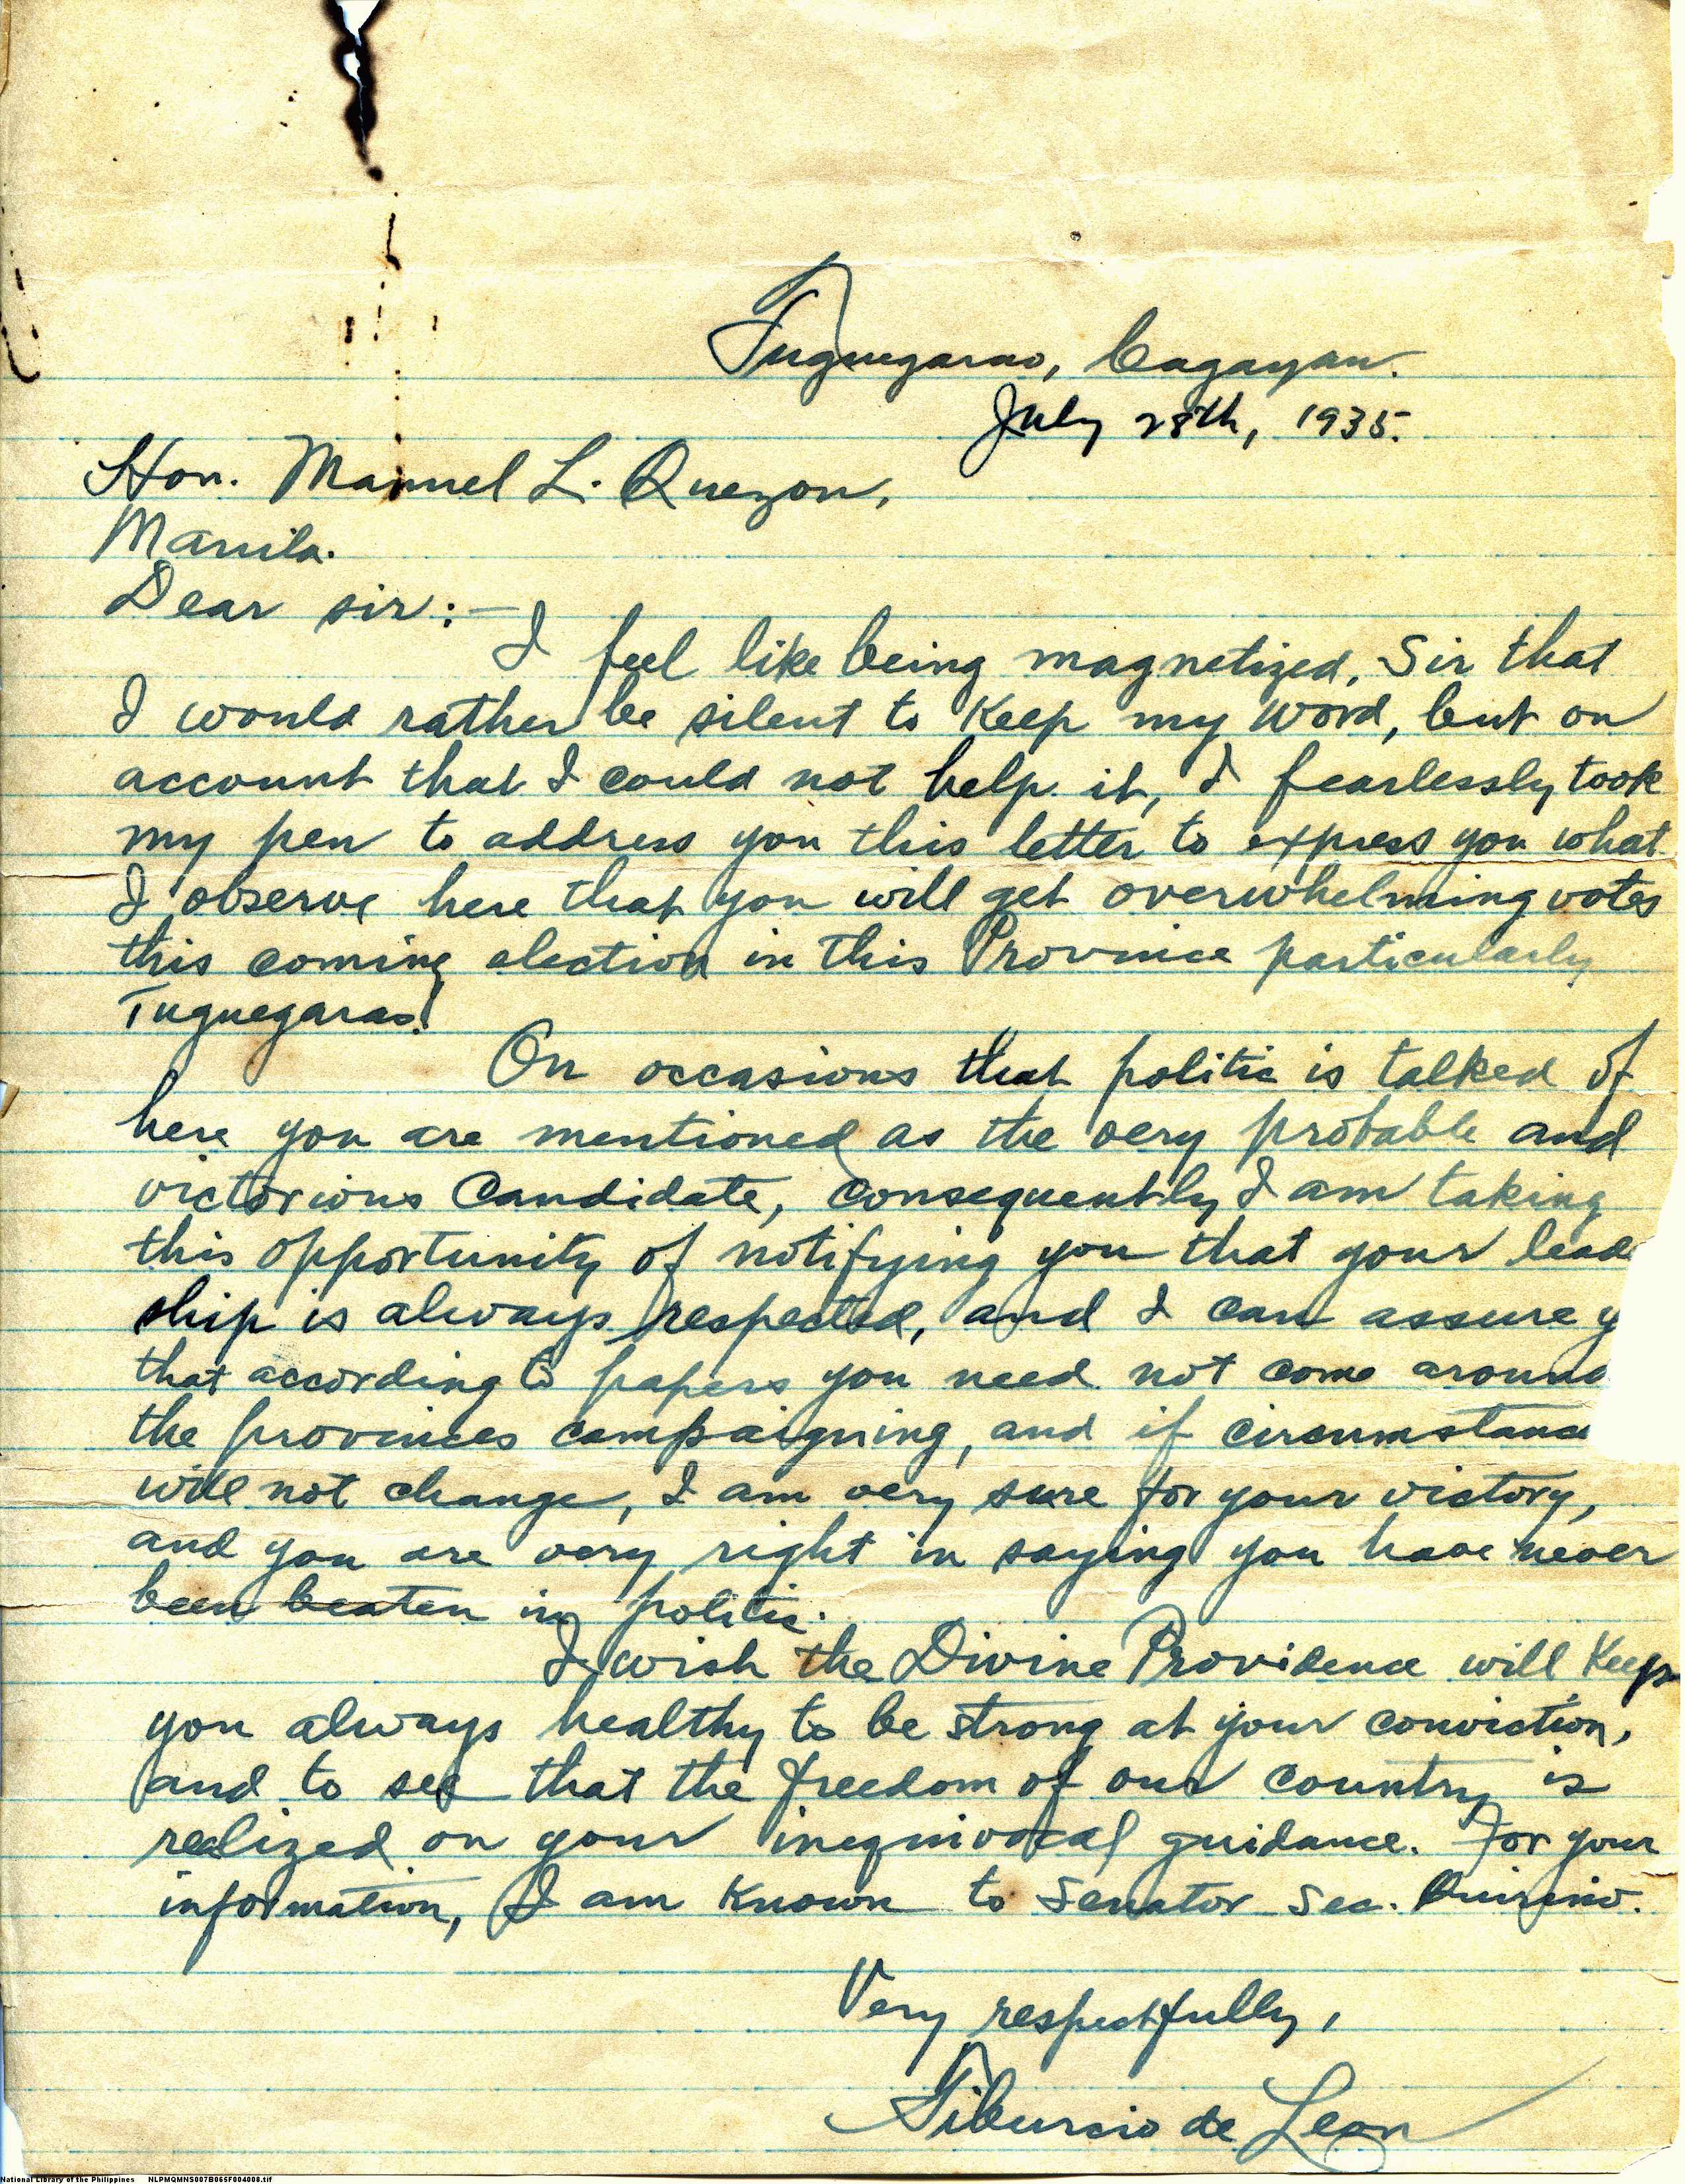 Tuguegarao, Cagayan.
July 28th, 1935.
Hon. Manuel L. Quezon,
Manila.
Dear sir:—
I feel like being magnetized, Sir that
I would rather be silent to keep my word, but on
account that I could not help it, I fearlessly took
my pen to address you this letter to express you what
I observe here that you will get overwhelming votes
this coming election in this Province particularly
Tuguegarao!
On occasions that politic is talked of
here you are mentioned as the very probable and
victorious Candidate, consequently I am taking
this opportunity of notifying you that your lead
ship is always respected, and I can assure y
that according to papers you need not come around
the provinces campaigning, and if circumstanc
will not change, I am very sure for your victory,
and you are very right in saying you have never
been beaten in politic.
I wish the Divine Providence will keep
you always healthy to be strong at your conviction,
and to see that the freedom of our country is
realized on your inequivocal guidance. For your
information, I am known to Senator Sec. Quirino.
Very respectfully,
Tiburcio de Leon
National Library of the Philippines NLPMQMNS007B065F004008.tif